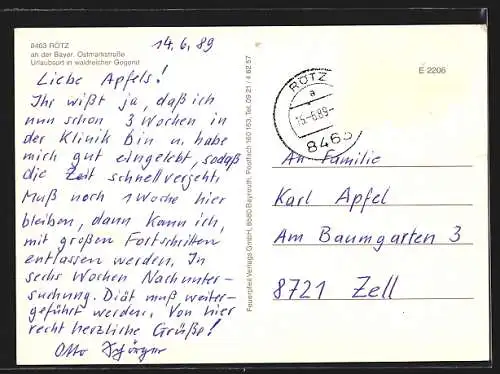 8463 RÖTZ
an der Bayer. Ostmarkstraße
Urlaubsort in waldreicher Gegend
14.6.89
Liebe Apfels!
Ihr wißt ja, daß ich
nun schon 3 Wochen in
der Klinik bin u. habe
mich gut eingelebt, sodaß
die Zeit schnell vergeht.
Muß noch 1 Woche hier
bleiben, dann kann ich,
mit großen Fortschritten
entlassen werden. In
sechs Wochen Nachunter-
suchung. Diät muß weiter-
geführt werden. Von hier
recht herzliche Grüße!
Otto
Feuerpfeil Verlags GmbH, 8580 Bayreuth, Postfach 160 163, Tel. 09 21 / 4 62 57
E 2206
RÖTZ
a
15.-6.89-
8463
An Familie
Karl Apfel
Am Baumgarten 3
8721 Zell